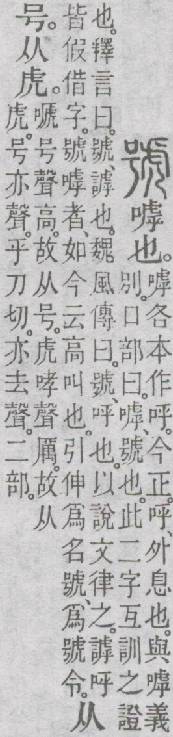 號嘑也。嘑各本作呼。今正。呼、外息也。與嘑義
別。口部曰。嘑、號也。此二字互訓之證
也。釋言曰。號、謼也。魏風傳曰。號、呼也。以說文律之。謼呼
皆假借字。號嘑者、如今云高叫也。引伸爲名號、爲號令。从
号。从虎。嗁号聲高。故从号。虎哮聲厲。故从
虎。号亦聲。乎刀切。亦去聲。二部。